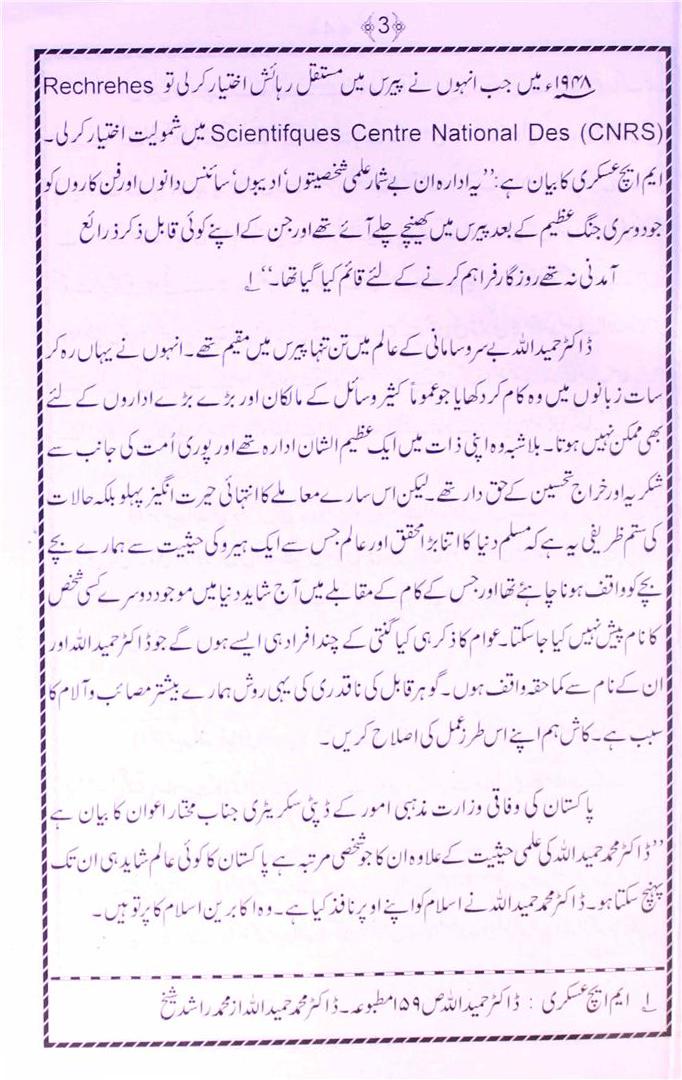 3
۱۹۴۸ء میں جب انہوں نے پیرس میں مستقل رہائش اختیار کر لی تو Rechrehes
Scientifques Centre National Des (CNRS) میں شمولیت اختیار کر لی۔
ایم ایچ عسکری کا بیان ہے: ’’یہ ادارہ ان بے شمار علمی شخصیتوں‘ ادیبوں‘ سائنس دانوں اور فن کاروں کو
جو دوسری جنگ عظیم کے بعد پیرس میں کھینچے چلے آئے تھے اور جن کے اپنے کوئی قابل ذکر ذرائع
آمدنی نہ تھے روزگار فراہم کرنے کے لئے قائم کیا گیا تھا۔‘‘ ۱؎
ڈاکٹر حمید اللہ بے سروسامانی کے عالم میں تن تنہا پیرس میں مقیم تھے۔ انہوں نے یہاں رہ کر
سات زبانوں میں وہ کام کر دکھایا جو عموماً کثیر وسائل کے مالکان اور بڑے بڑے اداروں کے لئے
بھی ممکن نہیں ہوتا۔ بلاشبہ وہ اپنی ذات میں ایک عظیم الشان ادارہ تھے اور پوری اُمت کی جانب سے
شکریہ اور خراج تحسین کے حق دار تھے۔ لیکن اس سارے معاملے کا انتہائی حیرت انگیز پہلو بلکہ حالات
کی ستم ظریفی یہ ہے کہ مسلم دنیا کا اتنا بڑا محقق اور عالم جس سے ایک ہیرو کی حیثیت سے ہمارے بچے
بچے کو واقف ہونا چاہئے تھا اور جس کے کام کے مقابلے میں آج شاید دنیا میں موجود دوسرے کسی شخص
کا نام پیش نہیں کیا جا سکتا۔ عوام کا ذکر ہی کیا گنتی کے چند افراد ہی ایسے ہوں گے جو ڈاکٹر حمید اللہ اور
ان کے نام سے کماحقہ واقف ہوں۔ گوہر قابل کی ناقدری کی یہی روش ہمارے بیشتر مصائب و آلام کا
سبب ہے۔ کاش ہم اپنے اس طرز عمل کی اصلاح کریں۔
پاکستان کی وفاقی وزارت مذہبی امور کے ڈپٹی سکریٹری جناب مختار اعوان کا بیان ہے
’’ڈاکٹر محمد حمید اللہ کی علمی حیثیت کے علاوہ ان کا جو شخصی مرتبہ ہے پاکستان کا کوئی عالم شاید ہی ان تک
پہنچ سکتا ہو۔ ڈاکٹر محمد حمید اللہ نے اسلام کو اپنے اوپر نافذ کیا ہے۔ وہ اکابرین اسلام کا پرتو ہیں۔
۱؎ ایم ایچ عسکری : ڈاکٹر حمید اللہ ص ۱۵۹ مطبوعہ۔ ڈاکٹر محمد حمید اللہ از محمد راشد شیخ